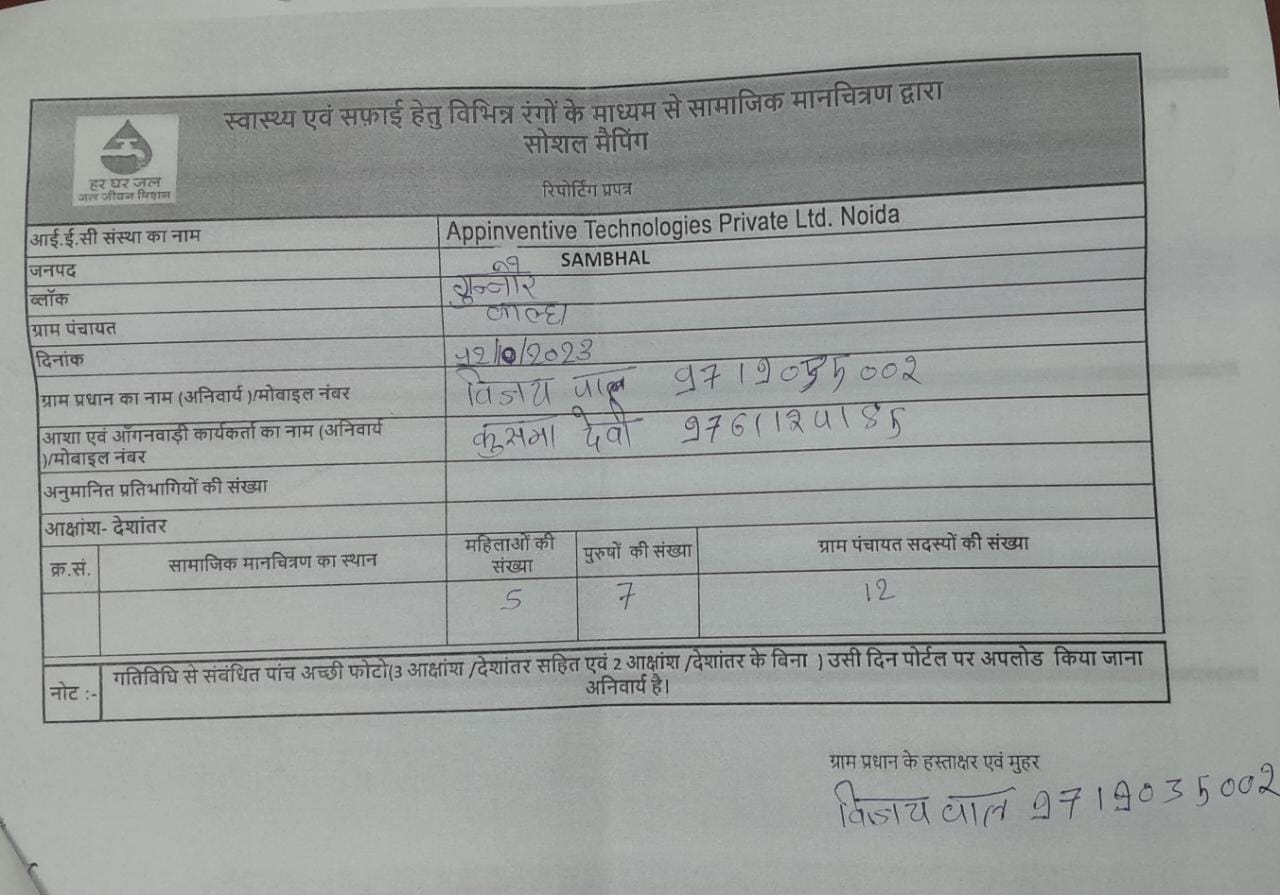 स्वास्थ्य एवं सफ़ाई हेतु विभिन्न रंगों के माध्यम से सामाजिक मानचित्रण द्वारा
सोशल मैपिंग
हर घर जल
जल जीवन मिशन
रिपोर्टिंग प्रपत्र
आई.ई.सी संस्था का नाम Appinventive Technologies Private Ltd. Noida
जनपद SAMBHAL
ब्लॉक गुन्नौर
ग्राम पंचायत
दिनांक /2023
ग्राम प्रधान का नाम (अनिवार्य )/मोबाइल नंबर विजय पाल 9719035002
आशा एवं ऑगनवाड़ी कार्यकर्ता का नाम (अनिवार्य
)/मोबाइल नंबर कुसमा देवी
अनुमानित प्रतिभागियों की संख्या
आक्षांश- देशांतर
क्र.सं. सामाजिक मानचित्रण का स्थान महिलाओं की संख्या पुरुषों की संख्या ग्राम पंचायत सदस्यों की संख्या
5 7 12
नोट :- गतिविधि से संबंधित पांच अच्छी फोटो(3 आक्षांश /देशांतर सहित एवं 2 आक्षांश /देशांतर के बिना ) उसी दिन पोर्टल पर अपलोड किया जाना
अनिवार्य है।
ग्राम प्रधान के हस्ताक्षर एवं मुहर
विजय पाल 9719035002